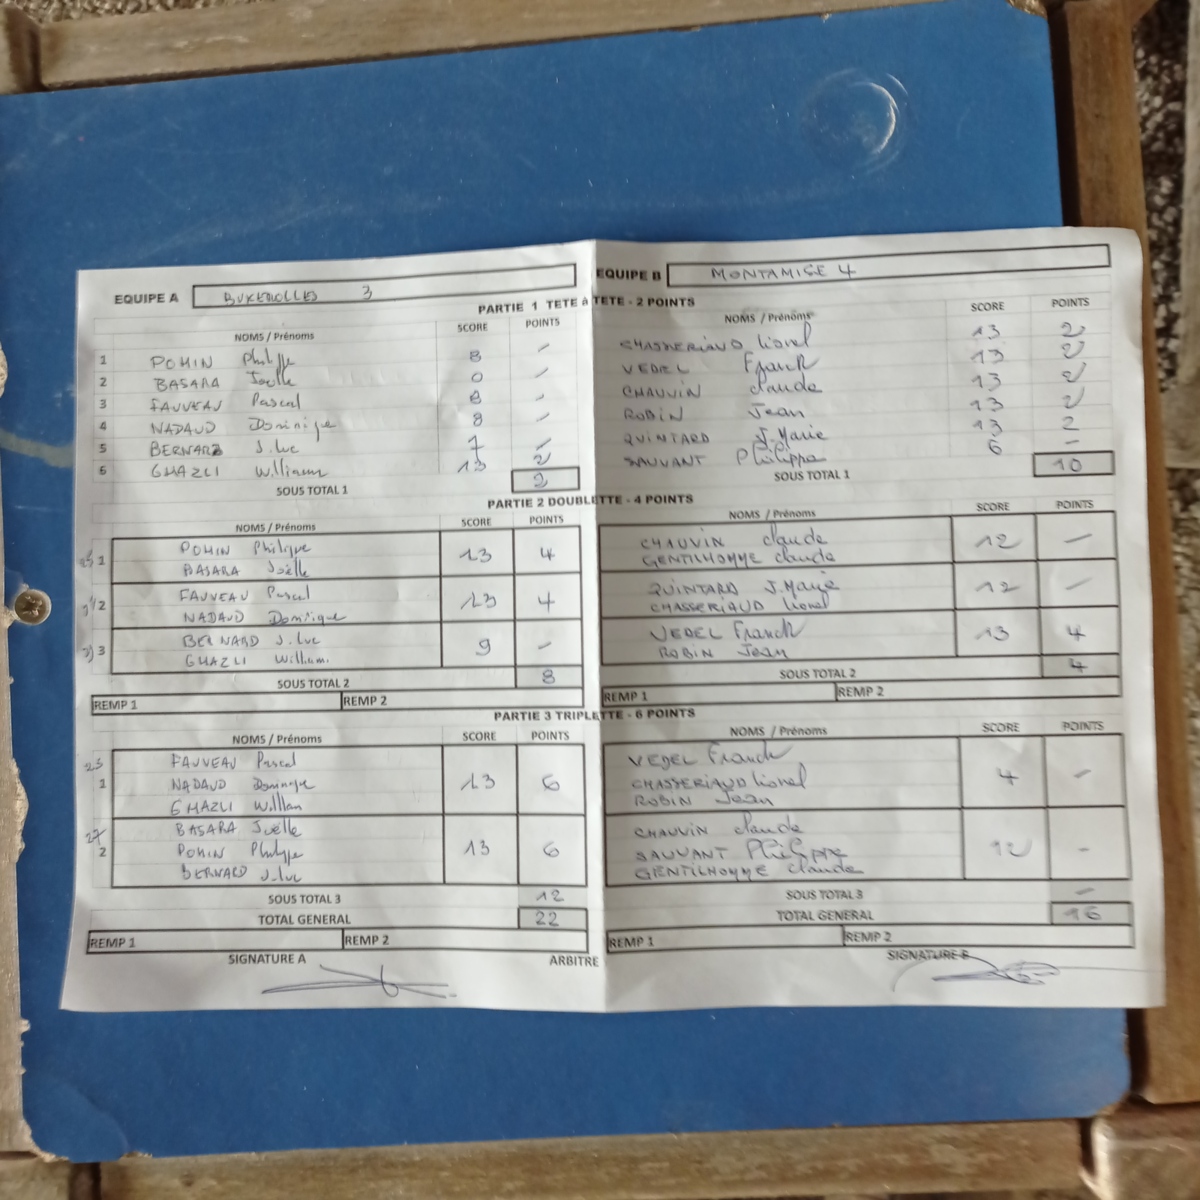 EQUIPE A BUXEROLLES 3 EQUIPE B MONTAMISE 4
PARTIE 1 TETE à TETE - 2 POINTS
NOMS / Prénoms SCORE POINTS NOMS / Prénoms SCORE POINTS
1 POHIN Philippe 8 - CHASSERIAUD Lionel 13 2
2 BASARA Joëlle 0 - VEDEL Franck 13 2
3 FAUVEAU Pascal 8 - CHAUVIN claude 13 2
4 NADAUD Dominique 8 - ROBIN Jean 13 2
5 BERNARD J.luc 7 - QUINTARD J.Marie 13 2
6 GHAZLI William 13 2 SAUVANT Philippe 6 -
SOUS TOTAL 1 2 SOUS TOTAL 1 10
PARTIE 2 DOUBLETTE - 4 POINTS
NOMS / Prénoms SCORE POINTS NOMS / Prénoms SCORE POINTS
1 POHIN Philippe 13 4 CHAUVIN claude 12 -
BASARA Joëlle GENTILHOMME claude
2 FAUVEAU Pascal 13 4 QUINTARD J.Marie 12 -
NADAUD Dominique CHASSERIAUD Lionel
3 BERNARD J.luc 9 - VEDEL Franck 13 4
GHAZLI William ROBIN Jean
SOUS TOTAL 2 8 SOUS TOTAL 2 4
REMP 1 REMP 2 REMP 1 REMP 2
PARTIE 3 TRIPLETTE - 6 POINTS
NOMS / Prénoms SCORE POINTS NOMS / Prénoms SCORE POINTS
FAUVEAU Pascal VEDEL Franck
1 NADAUD Dominique 13 6 CHASSERIAUD Lionel 4 -
GHAZLI William ROBIN Jean
BASARA Joëlle CHAUVIN claude
2 POHIN Philippe 13 6 SAUVANT Philippe 12 -
BERNARD J.luc GENTILHOMME claude
SOUS TOTAL 3 12 SOUS TOTAL 3 -
TOTAL GENERAL 22 TOTAL GENERAL 16
REMP 1 REMP 2 REMP 1 REMP 2
SIGNATURE A ARBITRE SIGNATURE B